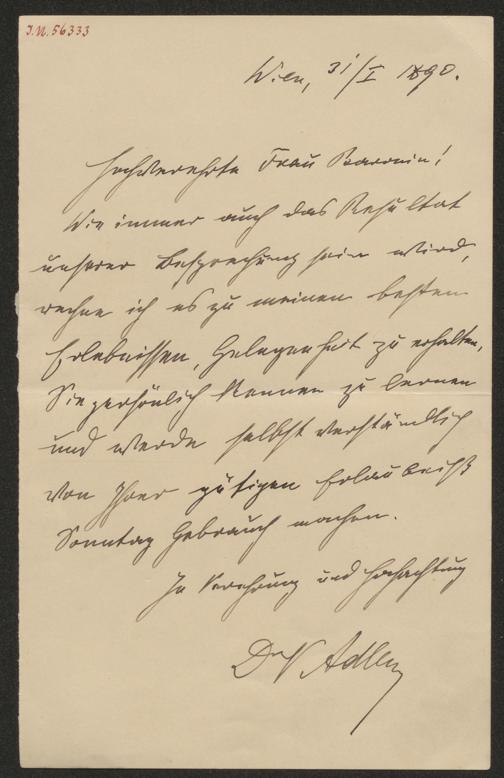 J.N. 56333
Wien, 31/I 1890.
Hochverehrte Frau Baronin!
Wie immer auch das Resultat
unserer Besprechung sein wird,
rechne ich es zu meinen besten
Erlebnissen, Gelegenheit zu erhalten,
Sie persönlich kennen zu lernen
und werde selbstverständlich
von Ihrer gütigen Erlaubniß
Sonntag Gebrauch machen.
In Verehrung und Hochachtung
Dr V Adler